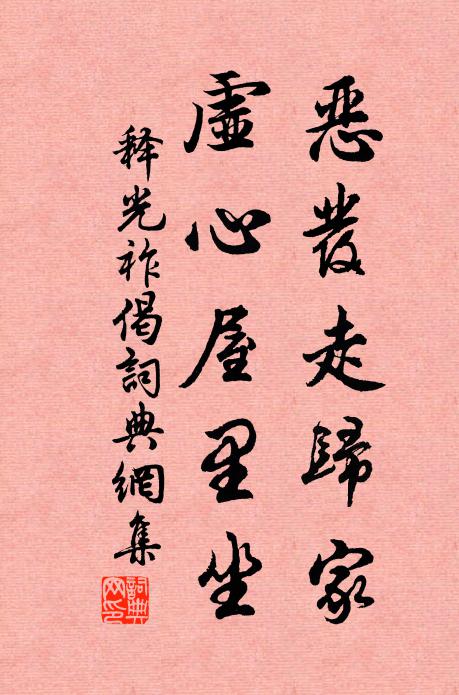 惡發走歸家
虛心屋里坐
释光祚偈詞典網集
詞典網印